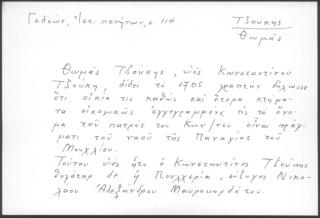 Γεδεών, Ἱστ. πενήτων, σ. 114
Τζούκης
Θωμάς
Θωμάς Τζούκης, υἱός Κωνσταντίνου
Τζούκη, δίδει τό 1705 γραπτήν δήλωσιν
ὅτι οἰκία τις καθώς καί ἕτερα κτήμα-
τα οἰκογενικῶς ἐγγεγραμμένα εἰς τό ὄνο-
μα τοῦ πατρός του Κων/νου εἶναι κτή-
ματι τοῦ ναοῦ τῆς Παναγίας τοῦ
Μουχλίου.
Τούτου υἱός ἦτο ὁ Κωνσταντῖνος Τζούκης
θυγάτηρ δέ ἡ Πουλχερία, σύζυγος Νικο-
λάου Ἀλεξάνδρου Μαυροκορδάτου.